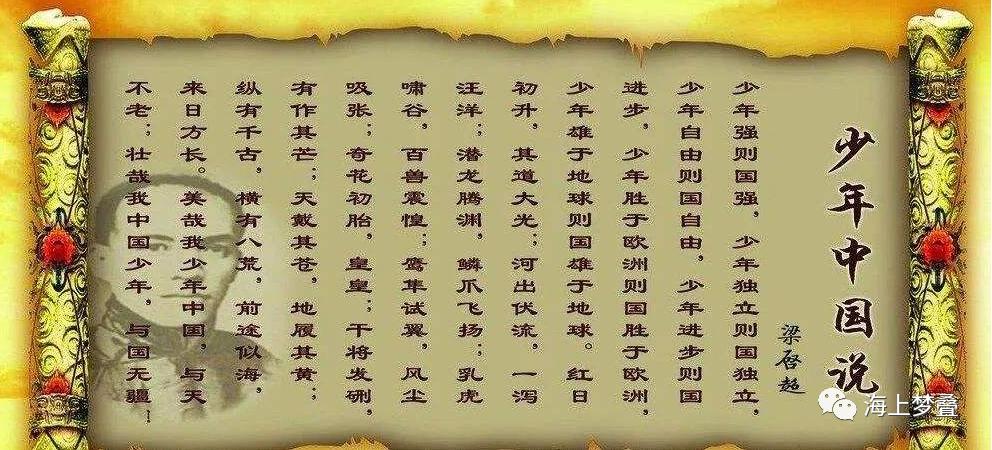 少年中国说
梁启超
少年强则国强，少年独立则国独立，
少年自由则国自由，少年进步则国
进步，少年胜于欧洲则国胜于欧洲，
少年雄于地球则国雄于地球。红日
初升，其道大光；河出伏流，一泻
汪洋；潜龙腾渊，鳞爪飞扬；乳虎
啸谷，百兽震惶；鹰隼试翼，风尘
吸张；奇花初胎，皇皇；干将发硎，
有作其芒；天戴其苍，地履其黄；
纵有千古，横有八荒，前途似海，
来日方长。美哉我少年中国，与天
不老；壮哉我中国少年，与国无疆！
海上梦叠